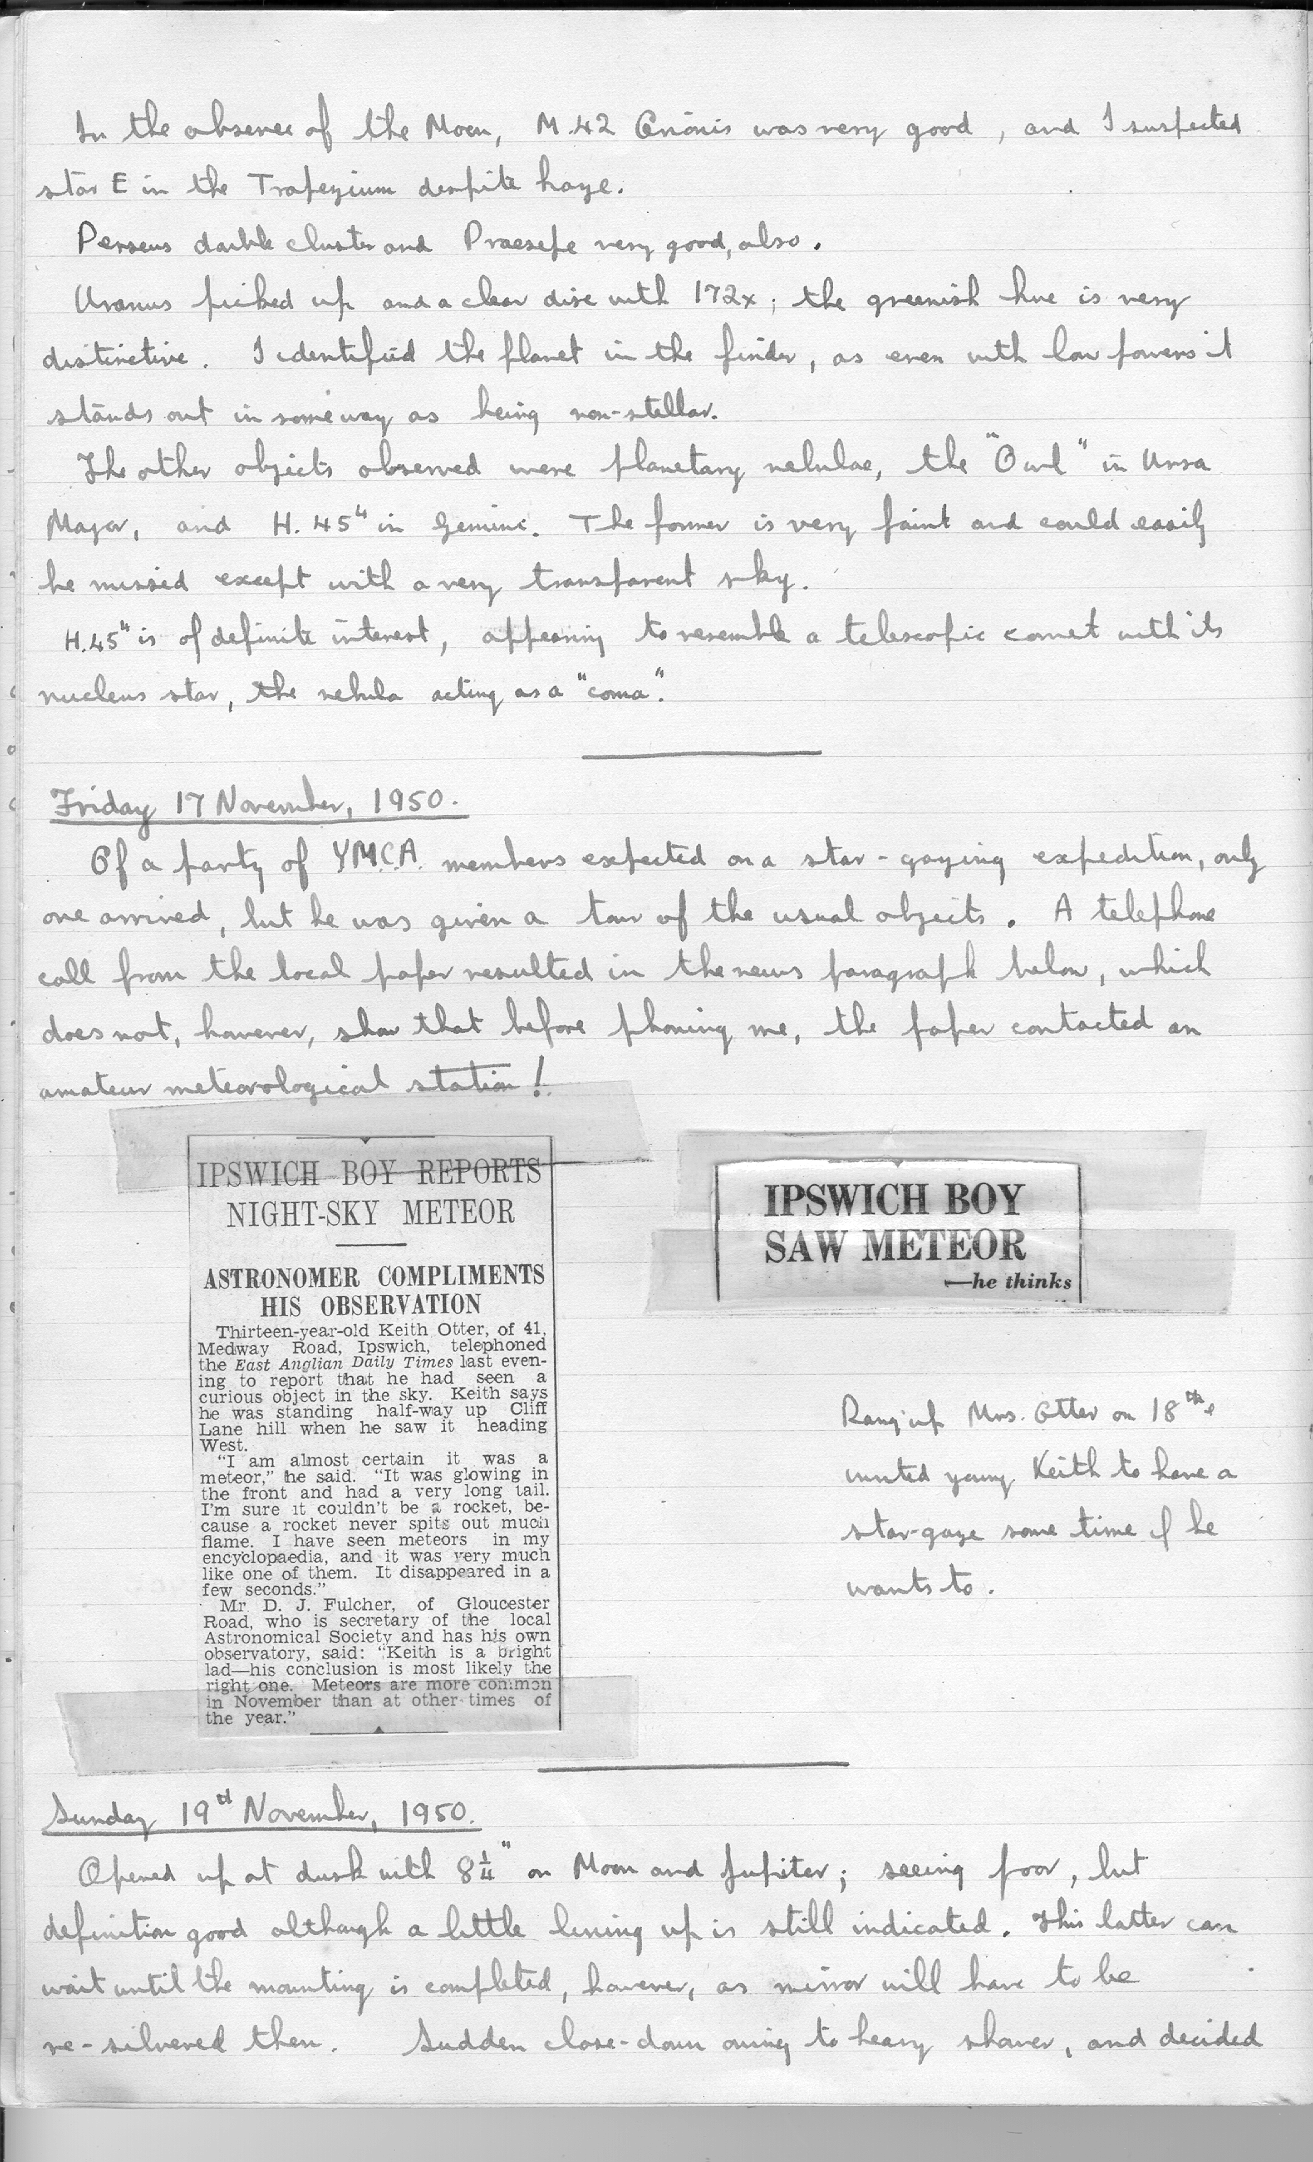 In the absence of the Moon, M.42 Orionis was very good, and I suspected
star E in the Trapezium despite haze.
Perseus double cluster and Praesepe very good, also.
Uranus picked up and a clear disc with 172x; the greenish hue is very
distinctive. I identified the planet in the finder, as even with low powers it
stands out in some way as being non-stellar.
The other objects observed were planetary nebulae, the "Owl" in Ursa
Major, and H. 45⁴ in Gemini. The former is very faint and could easily
be missed except with a very transparent sky.
H.45⁴ is of definite interest, appearing to resemble a telescopic comet with its
nucleus star, the nebula acting as a "coma".
Friday 17 November, 1950.
Of a party of Y.M.C.A. members expected on a star-gazing expedition, only
one arrived, but he was given a tour of the usual objects. A telephone
call from the local paper resulted in the news paragraph below, which
does not, however, show that before phoning me, the paper contacted an
amateur meteorological station!
IPSWICH BOY REPORTS
NIGHT-SKY METEOR
ASTRONOMER COMPLIMENTS
HIS OBSERVATION
Thirteen-year-old Keith Otter, of 41,
Medway Road, Ipswich, telephoned
the East Anglian Daily Times last even-
ing to report that he had seen a
curious object in the sky. Keith says
he was standing half-way up Cliff
Lane hill when he saw it heading
West.
"I am almost certain it was a
meteor," he said. "It was glowing in
the front and had a very long tail.
I'm sure it couldn't be a rocket, be-
cause a rocket never spits out much
flame. I have seen meteors in my
encyclopaedia, and it was very much
like one of them. It disappeared in a
few seconds."
Mr. D. J. Fulcher, of Gloucester
Road, who is secretary of the local
Astronomical Society and has his own
observatory, said: "Keith is a bright
lad—his conclusion is most likely the
right one. Meteors are more common
in November than at other times of
the year."
IPSWICH BOY
SAW METEOR
—he thinks
Rang up Mrs. Otter on 18th &
invited young Keith to have a
star-gaze some time if he
wants to.
Sunday 19th November, 1950.
Opened up at dusk with 8¼" on Moon and Jupiter; seeing poor, but
definition good although a little lining up is still indicated. This latter can
wait until the mounting is completed, however, as mirror will have to be
re-silvered then. Sudden close-down owing to heavy shower, and decided